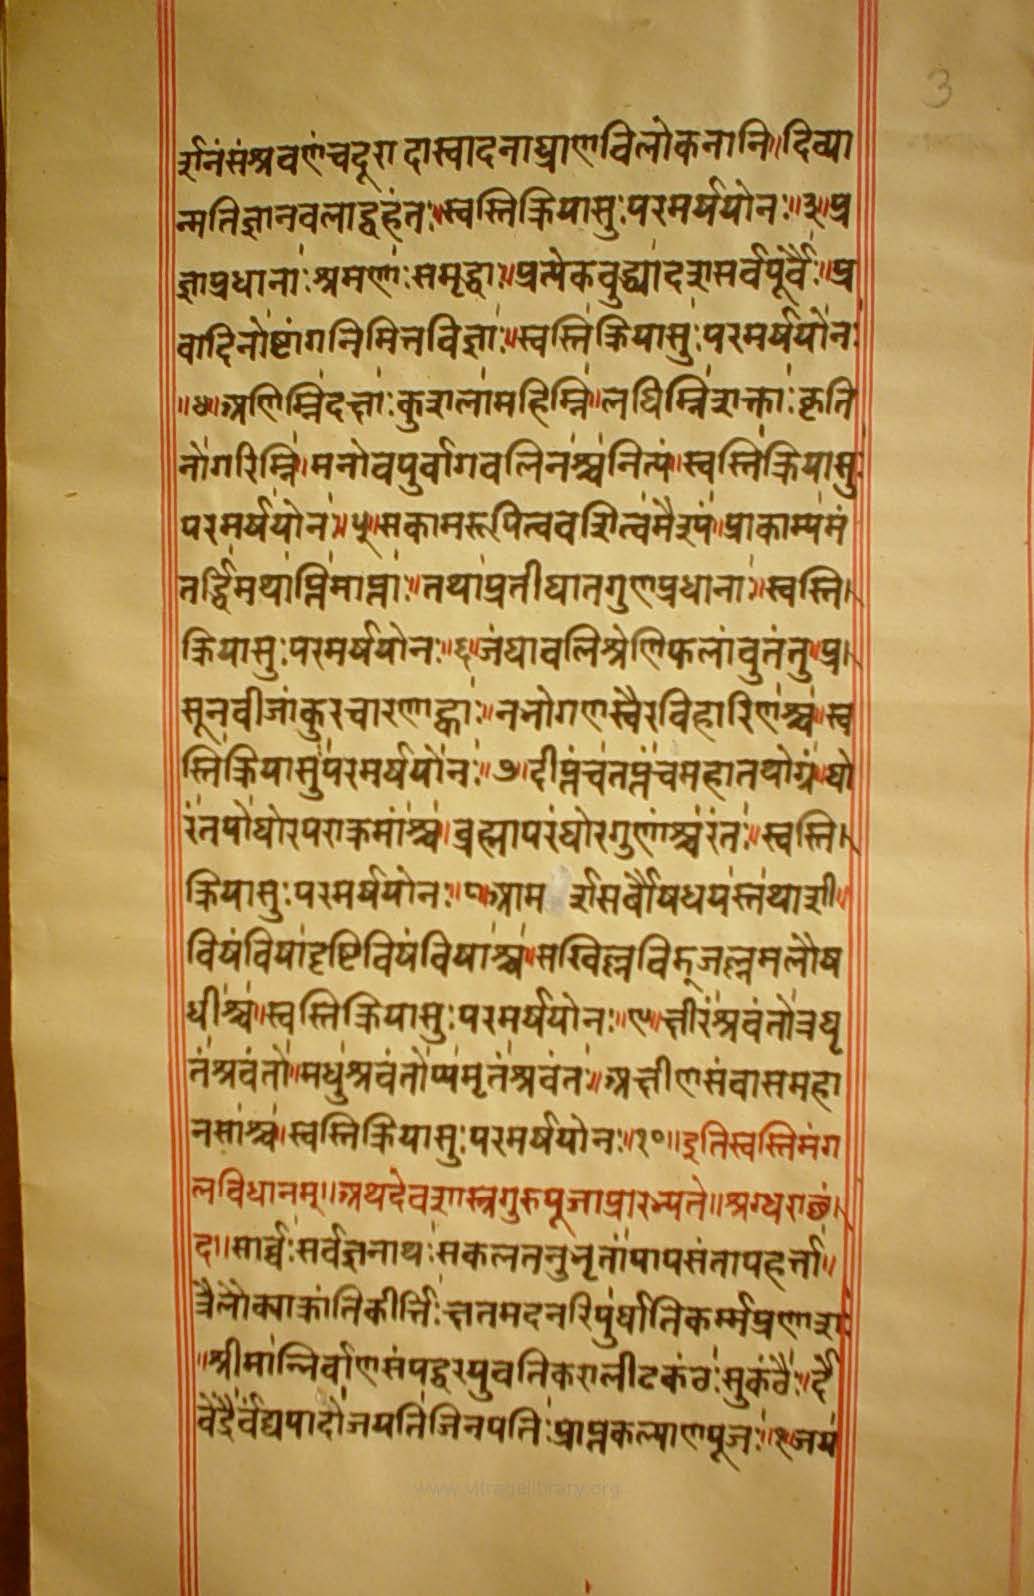 3
र्शनंसंश्रवणंचदूरा दास्वादनाघ्राणविलोकनानि॥दिव्या
न्मतिज्ञानवलाद्वहंतः॥स्वस्तिक्रियासुःपरमर्षयोनः॥३॥प्र
ज्ञाप्रधानाःश्रमणाःसमृद्धाः॥प्रत्येकवुद्ध्यादशसर्वपूर्वैः॥प्र
वादिनोष्टांगनिमित्तविज्ञाः॥स्वस्तिक्रियासुःपरमर्षयोनः
॥४॥अणिम्निदक्षाःकुशलामहिम्नि॥लघिम्निशक्ताःकृति
नोगरिम्नि॥मनोवपुर्वाग्वलिनश्चनित्यं॥स्वस्तिक्रियासुः
परमर्षयोनः॥५॥सकामरूपित्ववशित्वमैश्यं॥प्राकाम्यमं
तर्द्धिमथाप्तिमाप्ताः॥तथाप्रतीघातगुणप्रधानाः॥स्वस्ति।
क्रियासुःपरमर्षयोनः॥६॥जंघावलिश्रेणिफलांवुतंतु॥प्र।
सूनवीजांकुरचारणाह्वाः॥नभोगणस्वैरविहारिणश्च॥स्व
स्तिक्रियासुःपरमर्षयोनः॥७॥दीप्तंचतप्तंचमहातथोग्रं॥घो
रंतपोघोरपराक्रमांश्च॥व्रह्मापरंघोरगुणांश्चरंतः॥स्वस्ति।
क्रियासुःपरमर्षयोनः॥८॥आम र्शसर्वौषधयस्तथाशी॥
विषंविषादृष्टिविषंविषाश्च॥सखिल्लविड्जल्लमलौष
धीश्च॥स्वस्तिक्रियासुःपरमर्षयोनः॥९॥क्षीरंश्रवंतोत्रघृ
तंश्रवंतो॥मधुश्रवंतोप्यमृतंश्रवंतः॥अक्षीणसंवासमहा
नसाश्च॥स्वस्तिक्रियासुःपरमर्षयोनः॥१०॥इतिस्वस्तिमंग
लविधानम्॥अथदेवशास्त्रगुरुपूजाप्रारभ्यते॥श्रग्धराछं।
द॥सार्व्वःसर्वज्ञनाथःसकलतनुभृतांपापसंतापहर्त्ता॥
त्रैलोक्याक्रांतिकीर्त्तिःक्षतमदनरिपुर्घातिकर्म्मप्रणाशः
॥श्रीमान्निर्वाणसंपद्वरयुवतिकरालीढकंठःसुकंठैः॥र्दे
वेंद्रैर्वंद्यपादोजयतिजिनपतिःप्राप्तकल्याणपूजः॥१॥जय
www.vitragelibrary.org